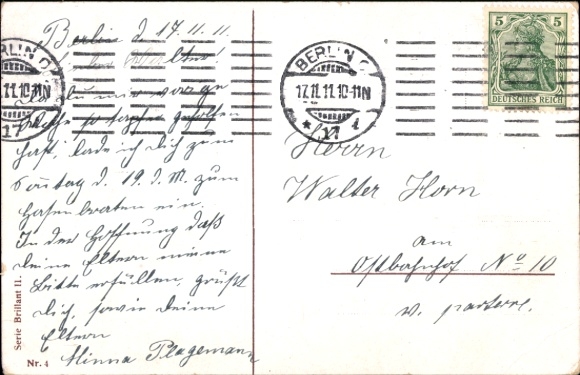 Berlin d. 17.11.11.
Lieber Walter!
Da du mir vorige
Woche so tapfer geholfen
hast, lade ich dich zum
Sonntag d. 19. d. M. zum
Hasenbraten ein.
In der Hoffnung daß
deine Eltern meine
Bitte erfüllen, grüßt
dich, sowie deine
Eltern
Minna Plagemann
Serie Brillant 11.
Nr. 4
BERLIN O
17.11.11.10-11N
* 17 i
BERLIN O
11.11.10-11N
17
5 5
DEUTSCHES REICH
Herrn
Walter Horn
am
Ostbahnhof No 10
v. parterre.